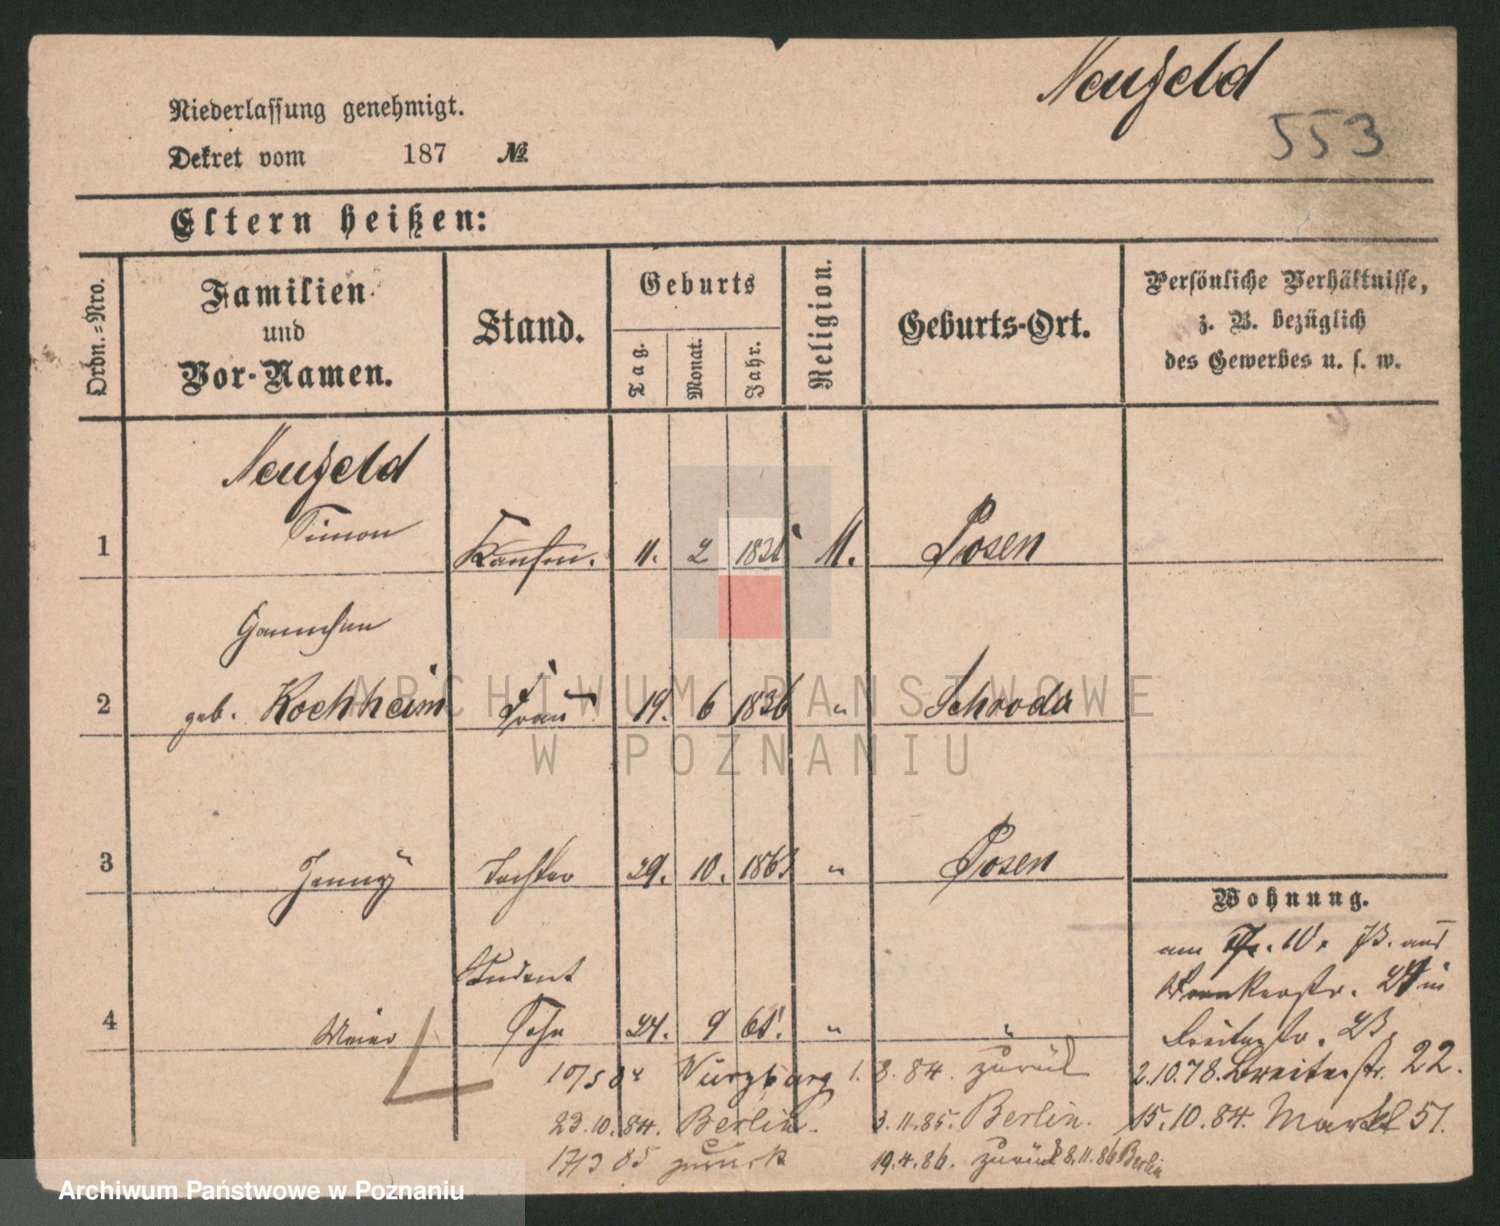 Neufeld
553
Niederlassung genehmigt.
Dekret vom 187 №
Eltern heißen:
Ordn.=Nro.
Familien und Vor-Namen.
Stand.
Geburts
Tag.
Monat.
Jahr.
Religion.
Geburts-Ort.
Persönliche Verhältnisse,
z. B. bezüglich
des Gewerbes u. s. w.
Neufeld
1 Simon 11. 2 M. Posen
geb. Kochheim
2 Frau 19. 6 1836 " Schroda
3 Jenny Tochter 29. 10. " Posen
Student
4 Meier Sohn 24. 9 " "
Wohnung.
am 10. 73. aus
in
Breitestr. 23.
2.10.78. Breitestr. 22.
15.10.84. Markt 51.
10/5 84 Würzburg 1. 8. 84. zurück
23.10.84. Berlin. 3.11.85. Berlin.
17/3 85 zurück 19.4.86. zurück 8.11.86 Berlin
ARCHIWUM PAŃSTWOWE
W POZNANIU
Archiwum Państwowe w Poznaniu